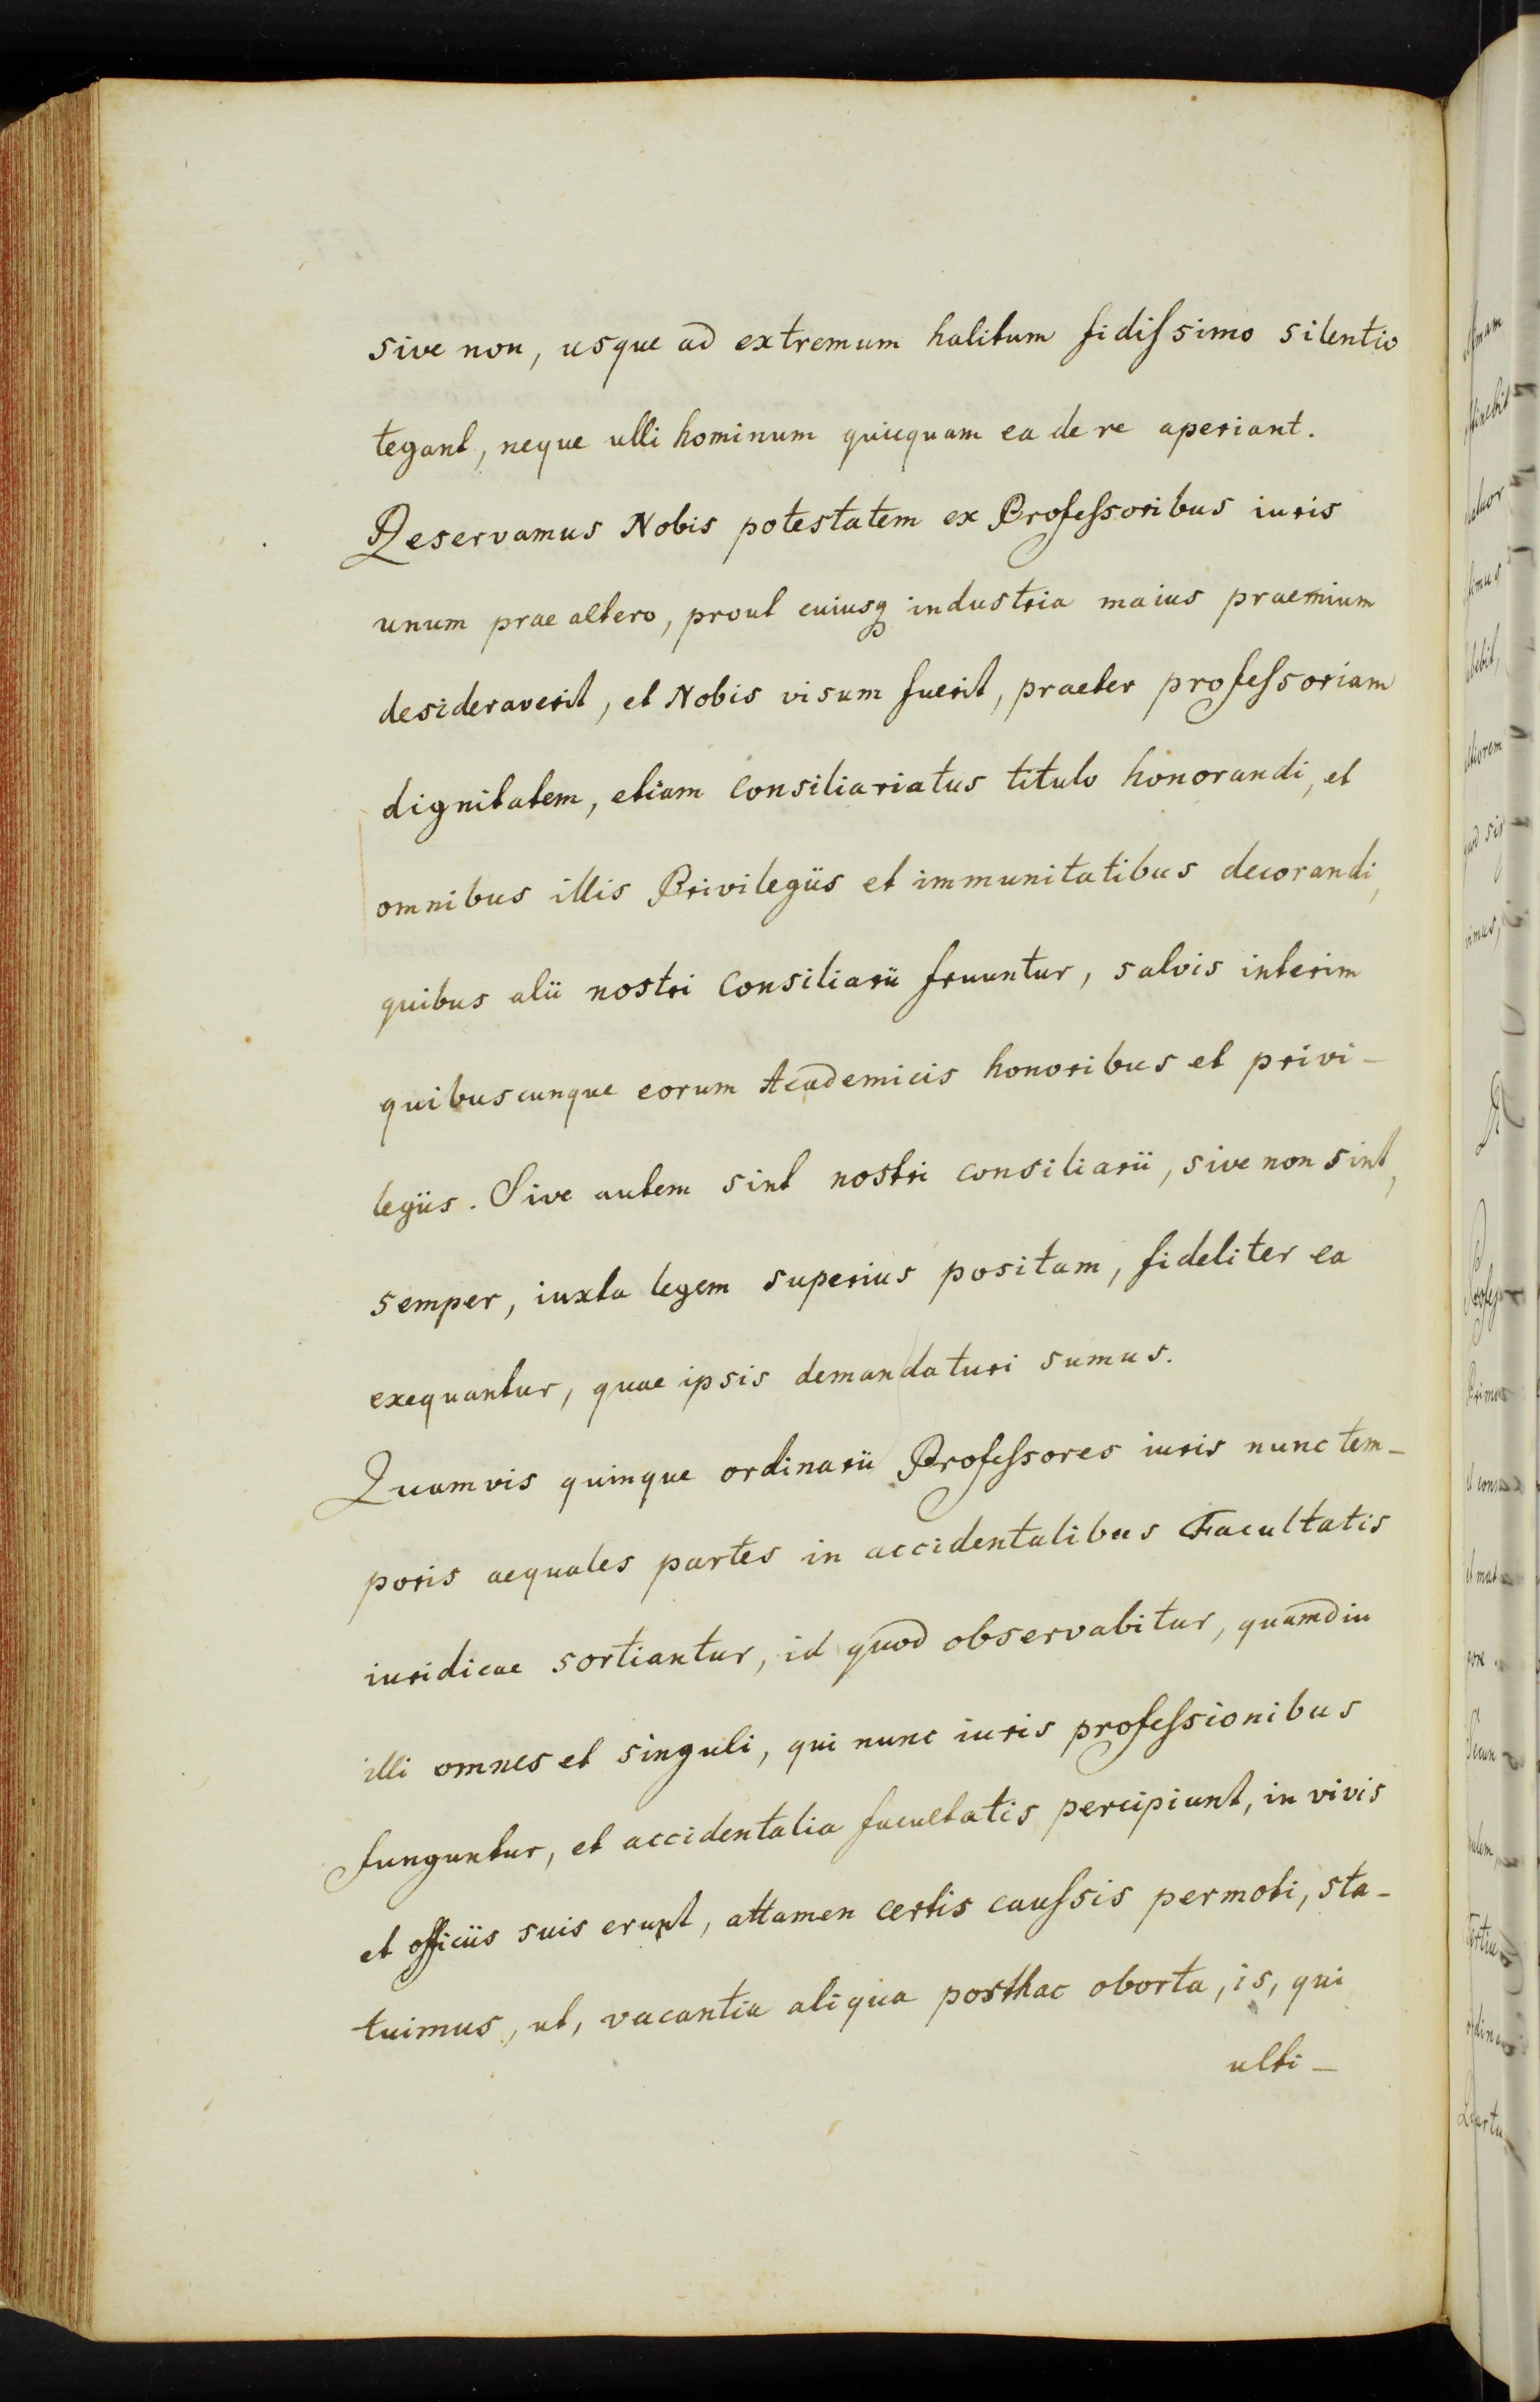 sive non, usque ad extremum halitum fidiſsimo silentio
tegant, neque ulli hominum quicquam ea de re aperiant.
Reservamus Nobis potestatem ex Profeſsoribus iuris
unum prae altero, prout cuiusq industria maius praemium
desideraverit, et Nobis visum fuerit, praeter profeſsoriam
dignitatem, etiam Consiliariatus titulo honorandi, et
omnibus illis Privilegiis et immunitatibus decorandi,
quibus alii nostri Consiliarii fruuntur, salvis interim
quibuscunque eorum Academicis honoribus et privi-
legiis. Sive autem sint nostri consiliarii, sive non sint,
semper, iuxta legem superius positam, fideliter ea
exequantur, quae ipsis demandaturi sumus.
Quamvis quinque ordinarii Profeſsores iuris nunc tem-
poris aequales partes in accidentalibus Facultatis
iuridicae sortiantur, id quod observabitur, quamdiu
illi omnes et singuli, qui nunc iuris profeſsionibus
funguntur, et accidentalia facultatis percipiunt, in vivis
et officiis suis erunt, attamen certis cauſsis permoti, sta-
tuimus, ut, vacantia aliqua posthac oborta, is, qui
ulti-